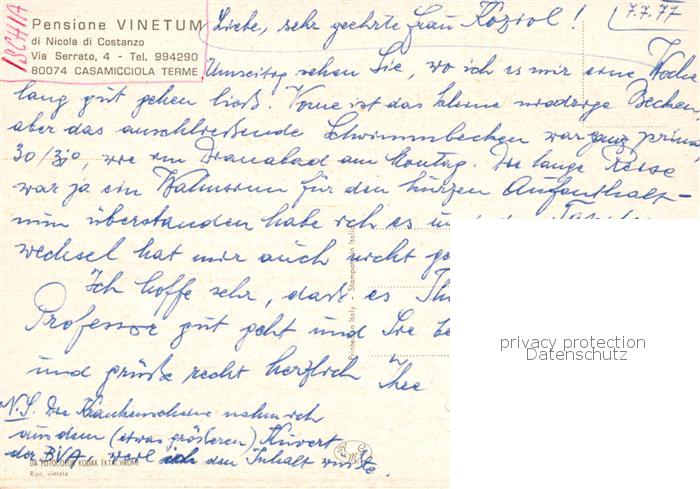 ISCHIA
Pensione VINETUM
di Nicola di Costanzo
Via Serrato, 4 - Tel. 994290
80074 CASAMICCIOLA TERME
7.7.77
Liebe, sehr geehrte Frau Koziol!
Umseitig sehen Sie, wo ich es mir eine Woche
lang gut gehen ließ. Vorne ist das kleine niedrige Becken,
aber das anschließende Schwimmbecken war ganz prima
30/31°, wie im Dianabad am Montag. Die lange Reise
war ja ein Wahnsinn für den kurzen Aufenthalt -
nun überstanden habe ich es und
wechsel hat mir auch nicht
Ich hoffe sehr, daß es
Professor gut geht und Sie
und grüße recht herzlich Ihre
N.S. Die Krankenscheine nahm ich
aus dem (etwas größeren) Kuvert
der BVA, weil ich den Inhalt wußte.
Printed in Italy - Stampato in Italia
DA FOTOCOLOR KODAK EKTACHROME
Ripr. vietata
privacy protection
Datenschutz